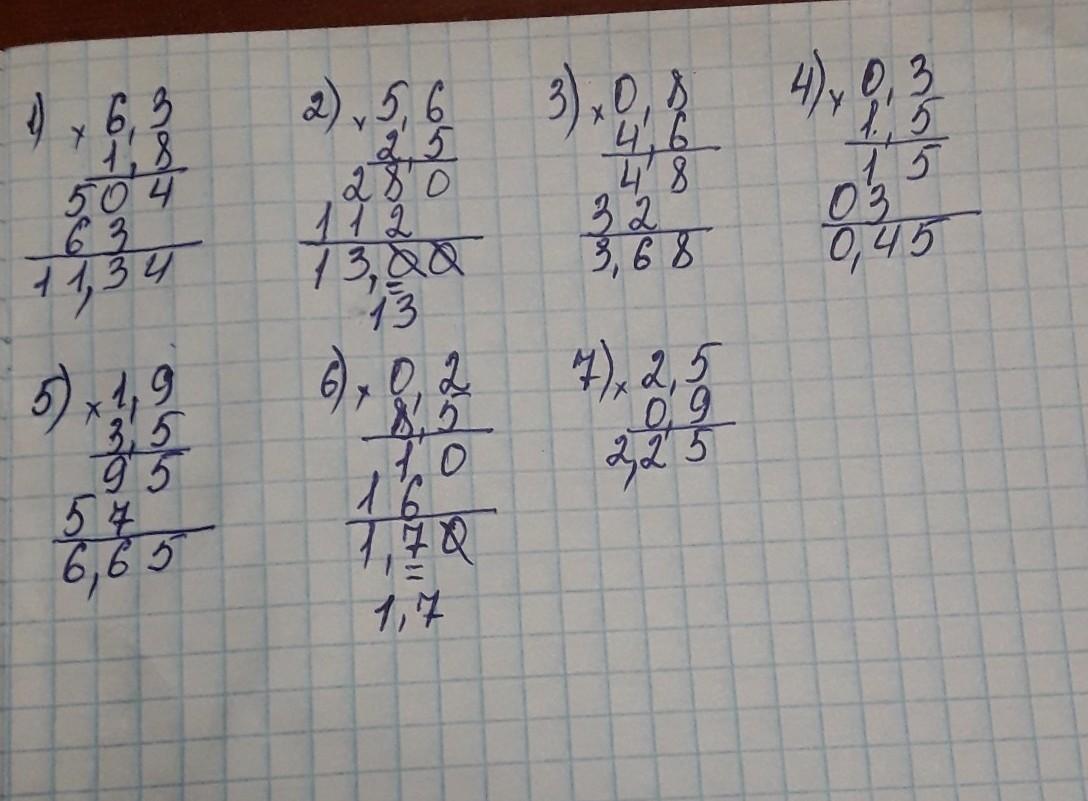 1) × 6,3
1,8
504
63
11,34
2) × 5,6
2,5
280
112
13,00
=
13
3) × 0,8
4,6
48
32
3,68
4) × 0,3
1,5
15
03
0,45
5) × 1,9
3,5
95
57
6,65
6) × 0,2
8,5
10
16
1,70
=
1,7
7) × 2,5
0,9
2,25